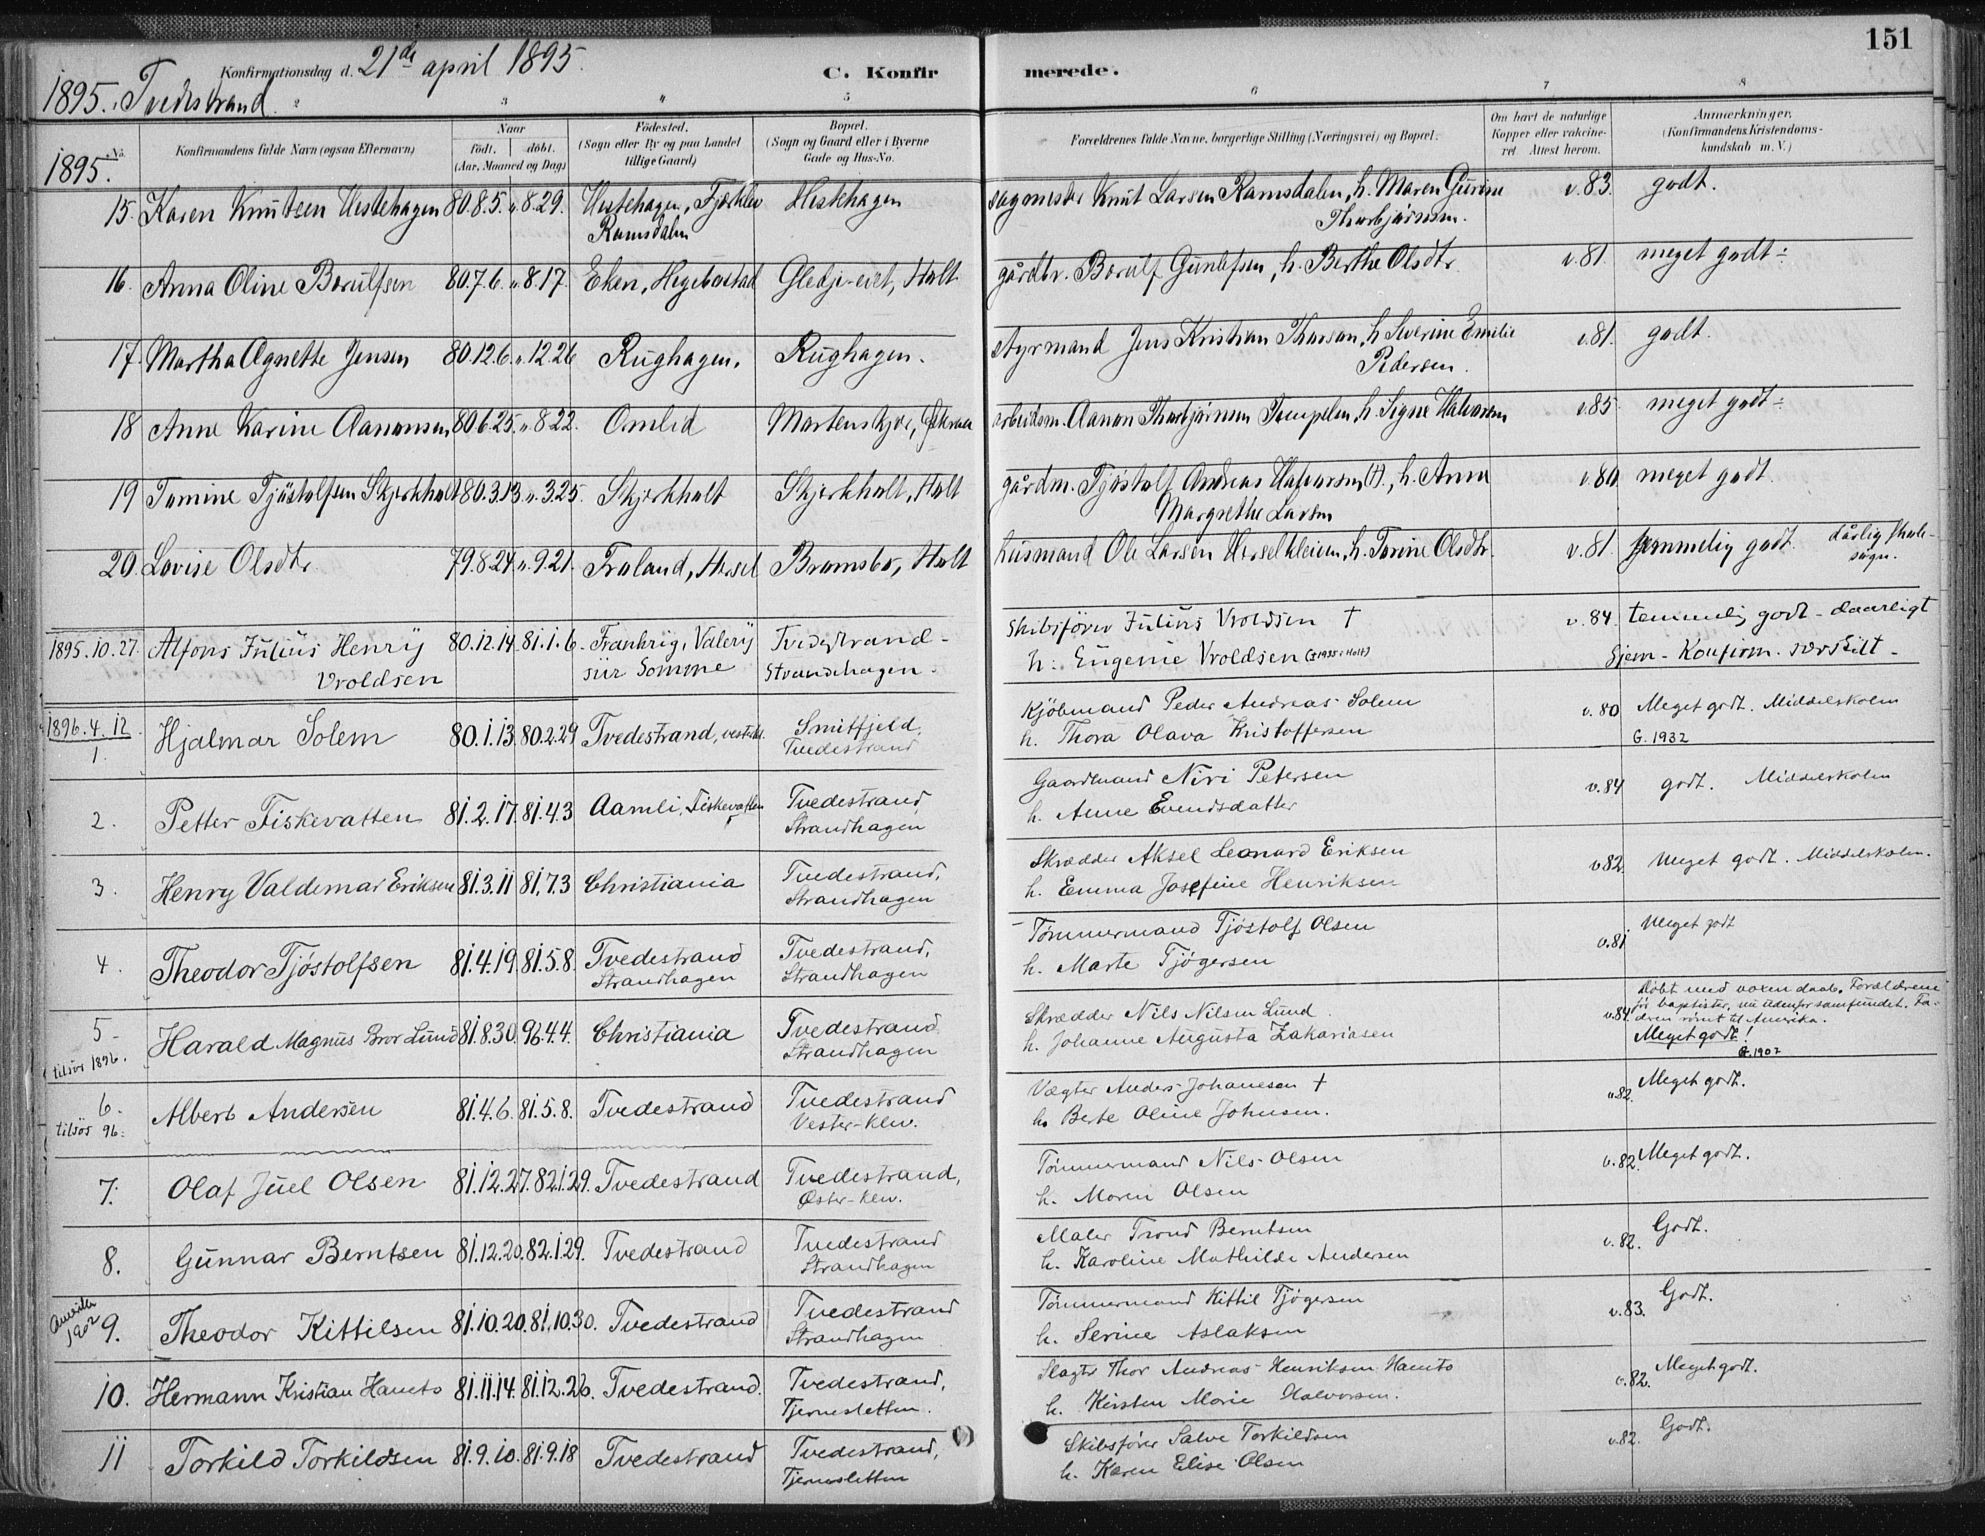 151
Konfirmationsdag d. 21de april 1895.
C. Konfirmerede.
1895. Tvedestrand.
2 3 4 5 6 7 8
No. Konfirmandens fulde Navn (ogsaa Efternavn)
Naar födt. döbt. (Aar, Maaned og Dag)
Födested. (Sogn eller By og paa Landet tillige Gaard)
Bopæl. (Sogn og Gaard eller i Byerne Gade og Hus-No.
Forældrenes fulde Navne, borgerlige Stilling (Næringsvei) og Bopæl.
Om havt de naturlige Kopper eller vakcineret Attest herom.
Anmerkninger. (Konfirmandens Kristendomskundskab m. V.)
1895.
15. Karen Knutsen Hestehagen 80.8.5. ". 8.29. Hestehagen, Hestehagen Knut Larsen Ramsdalen, h. Maren v. 83. godt.
Ramsdalen Thorbjørnsen.
16. Anna Oline Berulfsen 80.7.6. ". 8.17. Eken, Hegebostad Holt gårdbr. Berulf Gunlefsen, h. Berthe Olsdtr. v. 81. meget godt ÷
17. Martha Agnette Jensen 80.12.6. ". 12.26 Rughagen. Rughagen. styrmand Jens Kristian h. Severine Emilie v. 81. godt.
Pedersen.
18 Anne Karine Aanonsen 80.6.25. ". 8.22. Omlid Martenskjær, arbeidsm. Aanon Thorbjørnsen h. Signe Halvorsen v. 85. meget godt ÷
19 Tomine Tjøstolfsen Skjerkholt 80.3.13. ". 3.25. Skjerkholt Skjerkholt, Holt gårdm. Tjøstolf Andreas Halvorsen (†), h. Anne v. 80. meget godt.
Margrethe Larsen
20. Lovise Olsdtr. 79.8.24. ". 9.21. Froland, Hesel Bramsbo, Holt husmand Ole Larsen h. Tarine Olsdtr. v. 81. temmelig godt. dårlig skole-
søgn.
1895.10.27. Alfons Julius Henry 80.12.14. 81.1.6. Frankrig, Valery Tvedestrand - Skibsfører Julius Vroldsen † v. 84. temmelig godt - daarligt
Vroldsen sur Somme Strandhagen. h. Eugenie Vroldsen († 1935 i Holt) Hjem - Konfirm. særskilt -
1896.4.12
1. Hjalmar Solem 80.1.13. 80.2.29 Tvedestrand, Smitfjeld, Kjöbmand Peder Andreas Solem v. 80 Meget godt. Middelskolen
Tvedestrand h. Thora Olava Kristoffersen G. 1932
2. Petter Fiskevatten 81.2.17. 81.4.3 Aamli, Fiskevatten Tvedestrand Gaardmand Niri Petersen v. 84 godt. Middelskolen
Strandhagen h. Anne Evendsdatter
3. Henry Valdemar Eriksen 81.3.11 81.7.3 Christiania Tvedestrand, Skrædder Aksel Leonard Eriksen v. 82. Meget godt. Middelskolen.
Strandhagen h. Emma Josefine Henriksen
4. Theodor Tjöstolfsen 81.4.19. 81.5.8. Tvedestrand Tvedestrand, Tömmermand Tjöstolf Olsen v. 81. Meget godt
Strandhagen Strandhagen h. Marte Tjögersen
5 - Harald Magnus Bror Lund 81.8.30. 96.4.4. Christiania Tvedestrand Skrædder Nils Nilsen Lund v. 84. Døbt med voxen daab. Forældrene
før baptister, nu udenfor samfundet. Fa-
deren rømt til Amerika.
tilsös 1896. Strandhagen h. Johanne Augusta Zakariasen Meget godt!
G. 1902
6. Albert Andersen 81.4.6. 81.5.8. Tvedestrand Tvedestrand Vægter Anders Johanesen † v. 82. Meget godt.
tilsös 96. Vester-Klev. h. Berte Oline Johnsen.
7. Olaf Juel Olsen 81.12.27. 82.1.29. Tvedestrand Tvedestrand, Tömmermand Nils Olsen v. 82. Meget godt.
Öster-Klev. h. Moren Olsen
8. Gunnar Berntsen 81.12.20. 82.1.29. Tvedestrand Tvedestrand Maler Trond Berntsen v. 82. Godt.
Strandhagen h. Karoline Mathilde Andersen
Amerika 1902 9. Theodor Kittilsen 81.10.20. 81.10.30. Tvedestrand Tvedestrand Tömmermand Kittil Tjögersen v. 83. Godt.
Strandhagen h. Serine Aslaksen
10. Hermann Kristian Hameto 81.11.14. 81.12.26. Tvedestrand. Tvedestrand, Slagter Thor Andreas Henriksen Hameto v. 82. Meget godt.
Tjernesletten. h. Kirsten Marie Halvorsen.
11 Torkild Torkildsen 81.9.10. 81.9.18 Tvedestrand Tvedestrand, Skibsfører Salve Torkildsen v. 82. Godt.
Tjernesletten h. Karen Elise Olsen